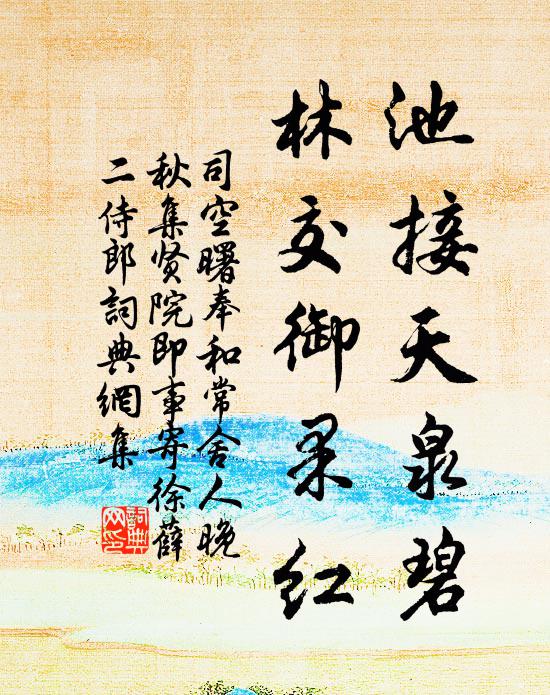 池接天泉碧
林交御果红
司空曙奉和常舍人晚
秋集贤院即事寄徐薛
二侍郎詞典網集
詞典网印